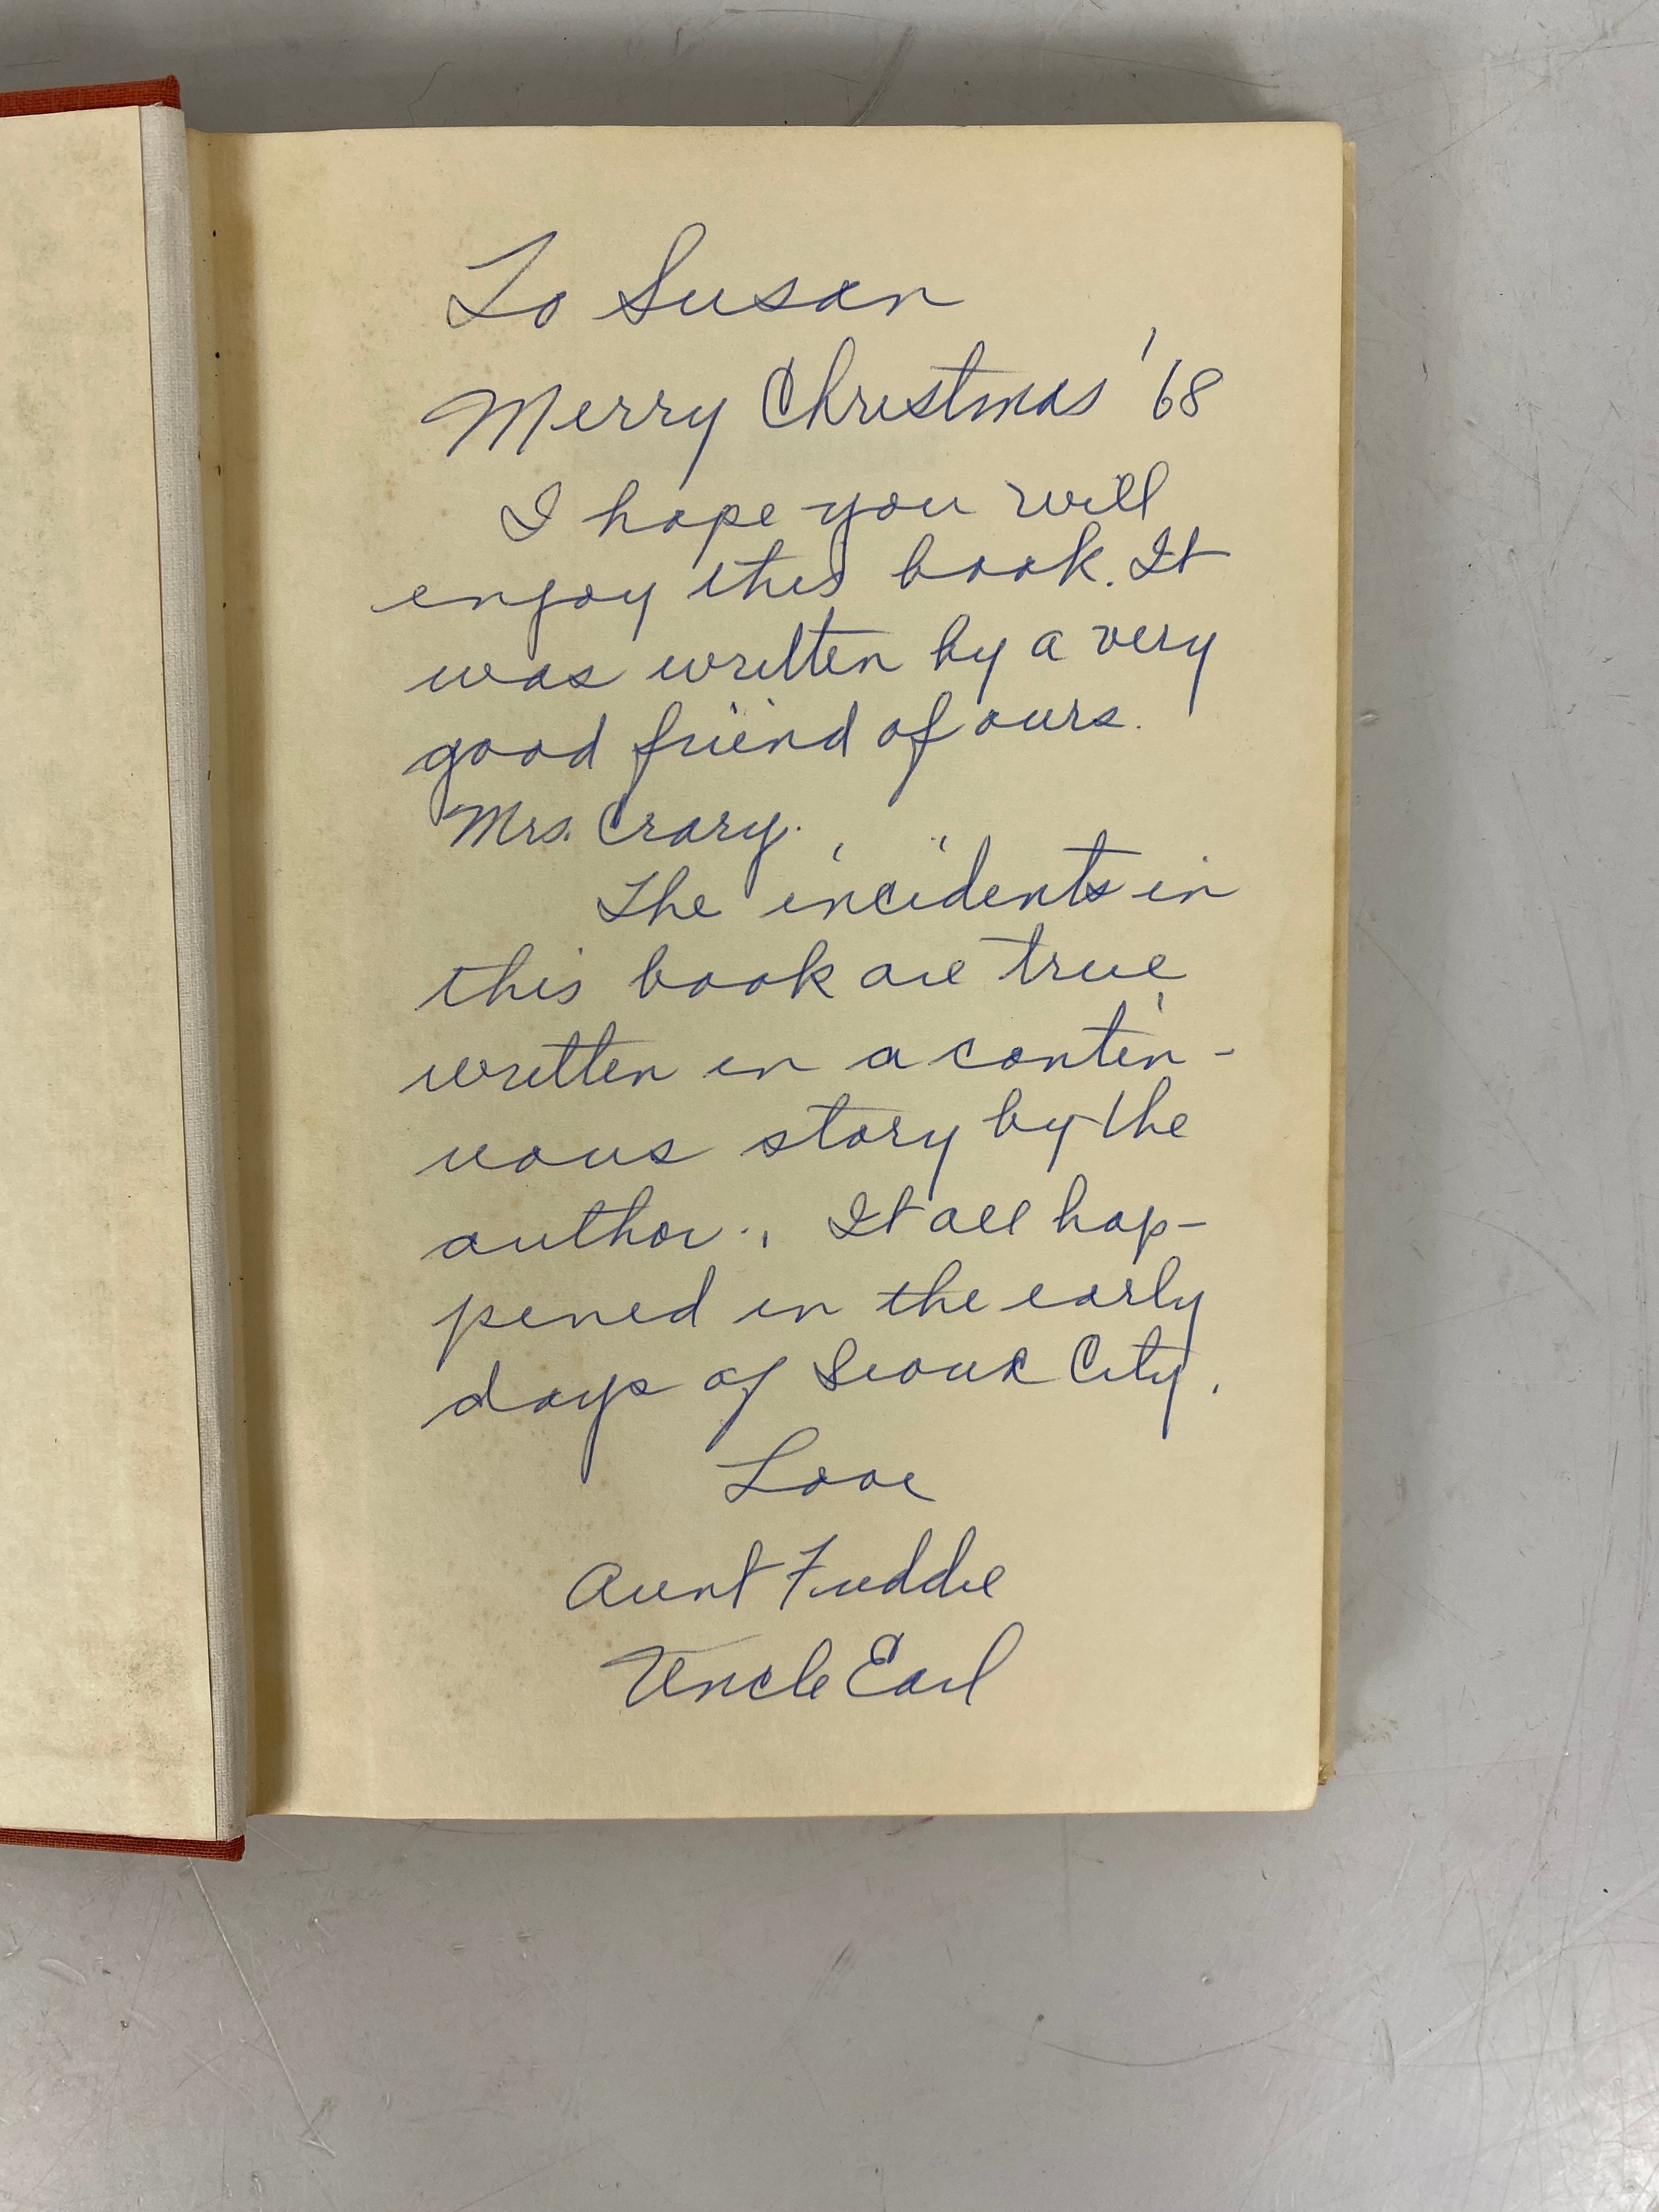 To Susan
Merry Christmas '68
I hope you will
enjoy this book. It
was written by a very
good friend of ours.
Mrs. Crary.
The incidents in
this book are true
written in a contin-
uous story by the
author. It all hap-
pened in the early
days of Sioux City.
Love
Aunt Freddie
Uncle Earl